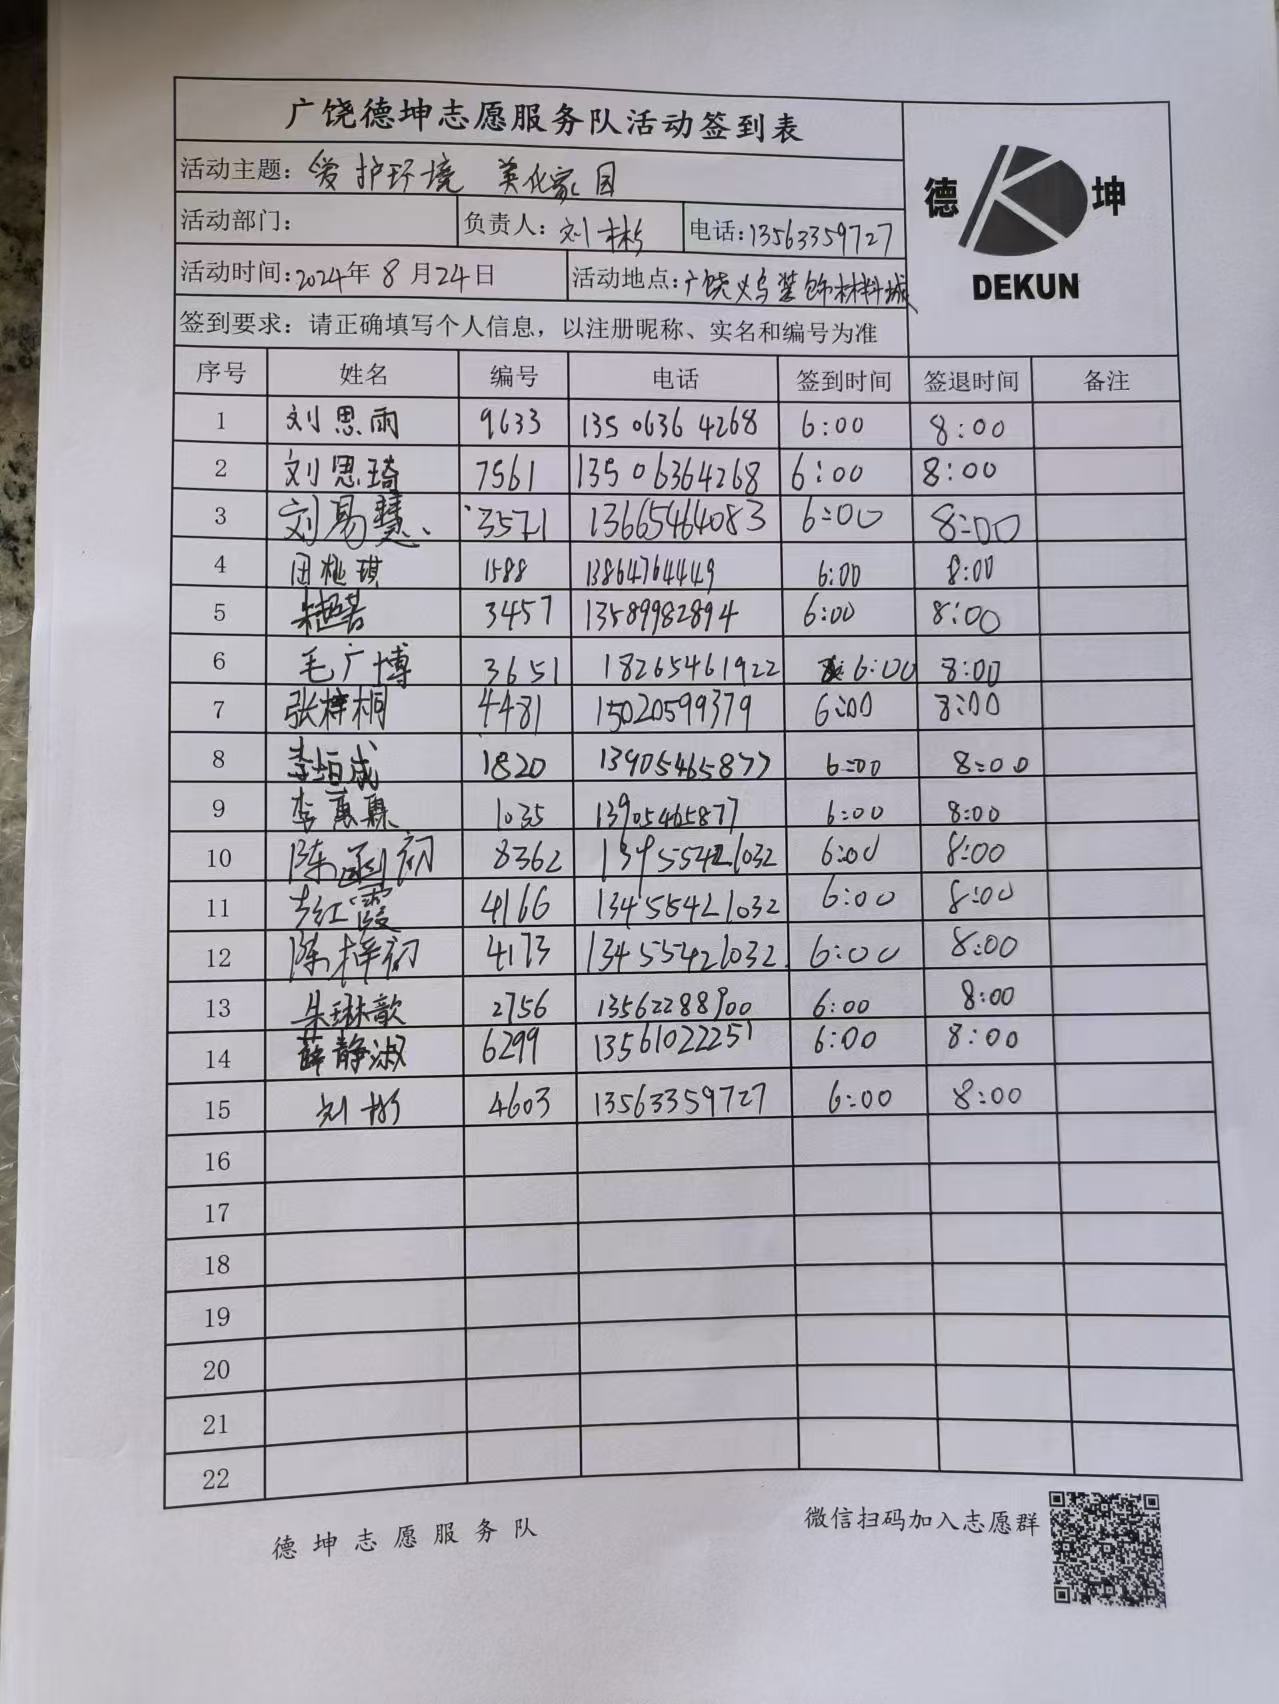 广饶德坤志愿服务队活动签到表
活动主题：爱护环境 美化家园
德 坤
DEKUN
活动部门： 负责人：刘彬 电话：13563359727
活动时间：2024年8月24日 活动地点：广饶义乌装饰材料城
签到要求：请正确填写个人信息，以注册昵称、实名和编号为准
序号 姓名 编号 电话 签到时间 签退时间 备注
1 刘思雨 9633 13506364268 6:00 8:00
2 刘思琦 7561 13506364268 6:00 8:00
3 刘易慧 3571 13665464083 6:00 8:00
4 田桃琪 1588 13864764449 6:00 8:00
5 3457 13589982894 6:00 8:00
6 毛广博 3651 18265461922 6:00 8:00
7 张梓桐 4481 15020599379 6:00 8:00
8 李垣成 1820 13905465877 6:00 8:00
9 1035 13905465877 6:00 8:00
10 陈函初 8362 13455421032 6:00 8:00
11 4166 13455421032 6:00 8:00
12 陈梓初 4173 13455421032 6:00 8:00
13 朱琳歆 2756 13562288900 6:00 8:00
14 薛静淑 6299 13561022251 6:00 8:00
15 刘彬 4603 13563359727 6:00 8:00
16
17
18
19
20
21
22
德坤志愿服务队 微信扫码加入志愿群